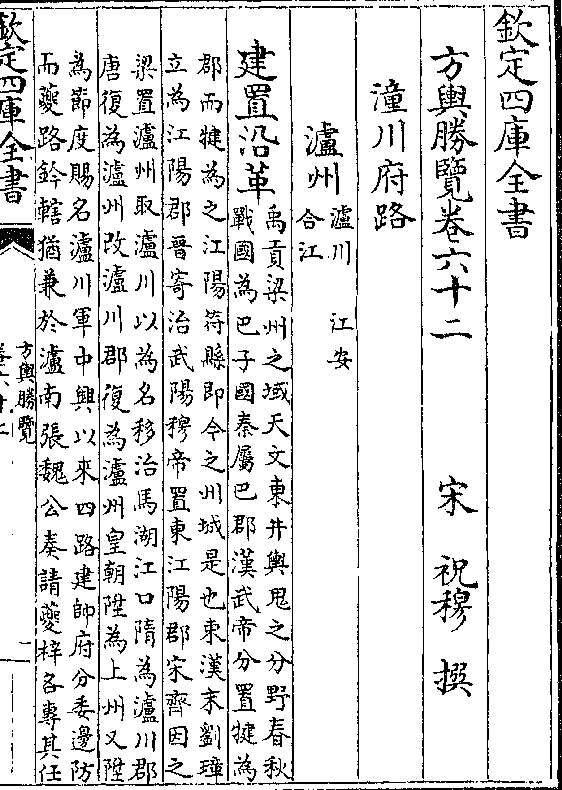 欽定四庫全書
方輿勝覽卷六十二
宋 祝穆 撰
潼川府路
瀘州 瀘川 江安
合江
建置沿革 禹貢梁州之域天文東井輿鬼之分野春秋
戰國為巴子國秦屬巴郡漢武帝分置犍為
郡而犍為之江陽符縣即今之州城是也東漢末劉璋
立為江陽郡晉寄治武陽穆帝置東江陽郡宋齊因之
梁置瀘州取瀘川以為名移治馬湖江口隋為瀘川郡
唐復為瀘州改瀘川郡復為瀘州皇朝陞為上州又陞
為節度賜名瀘川軍中興以來四路建帥府分委邊防
而夔路鈐轄猶兼於瀘南張魏公奏請夔梓各專其任
欽定四庫全書
方輿勝覽
卷六十二
一